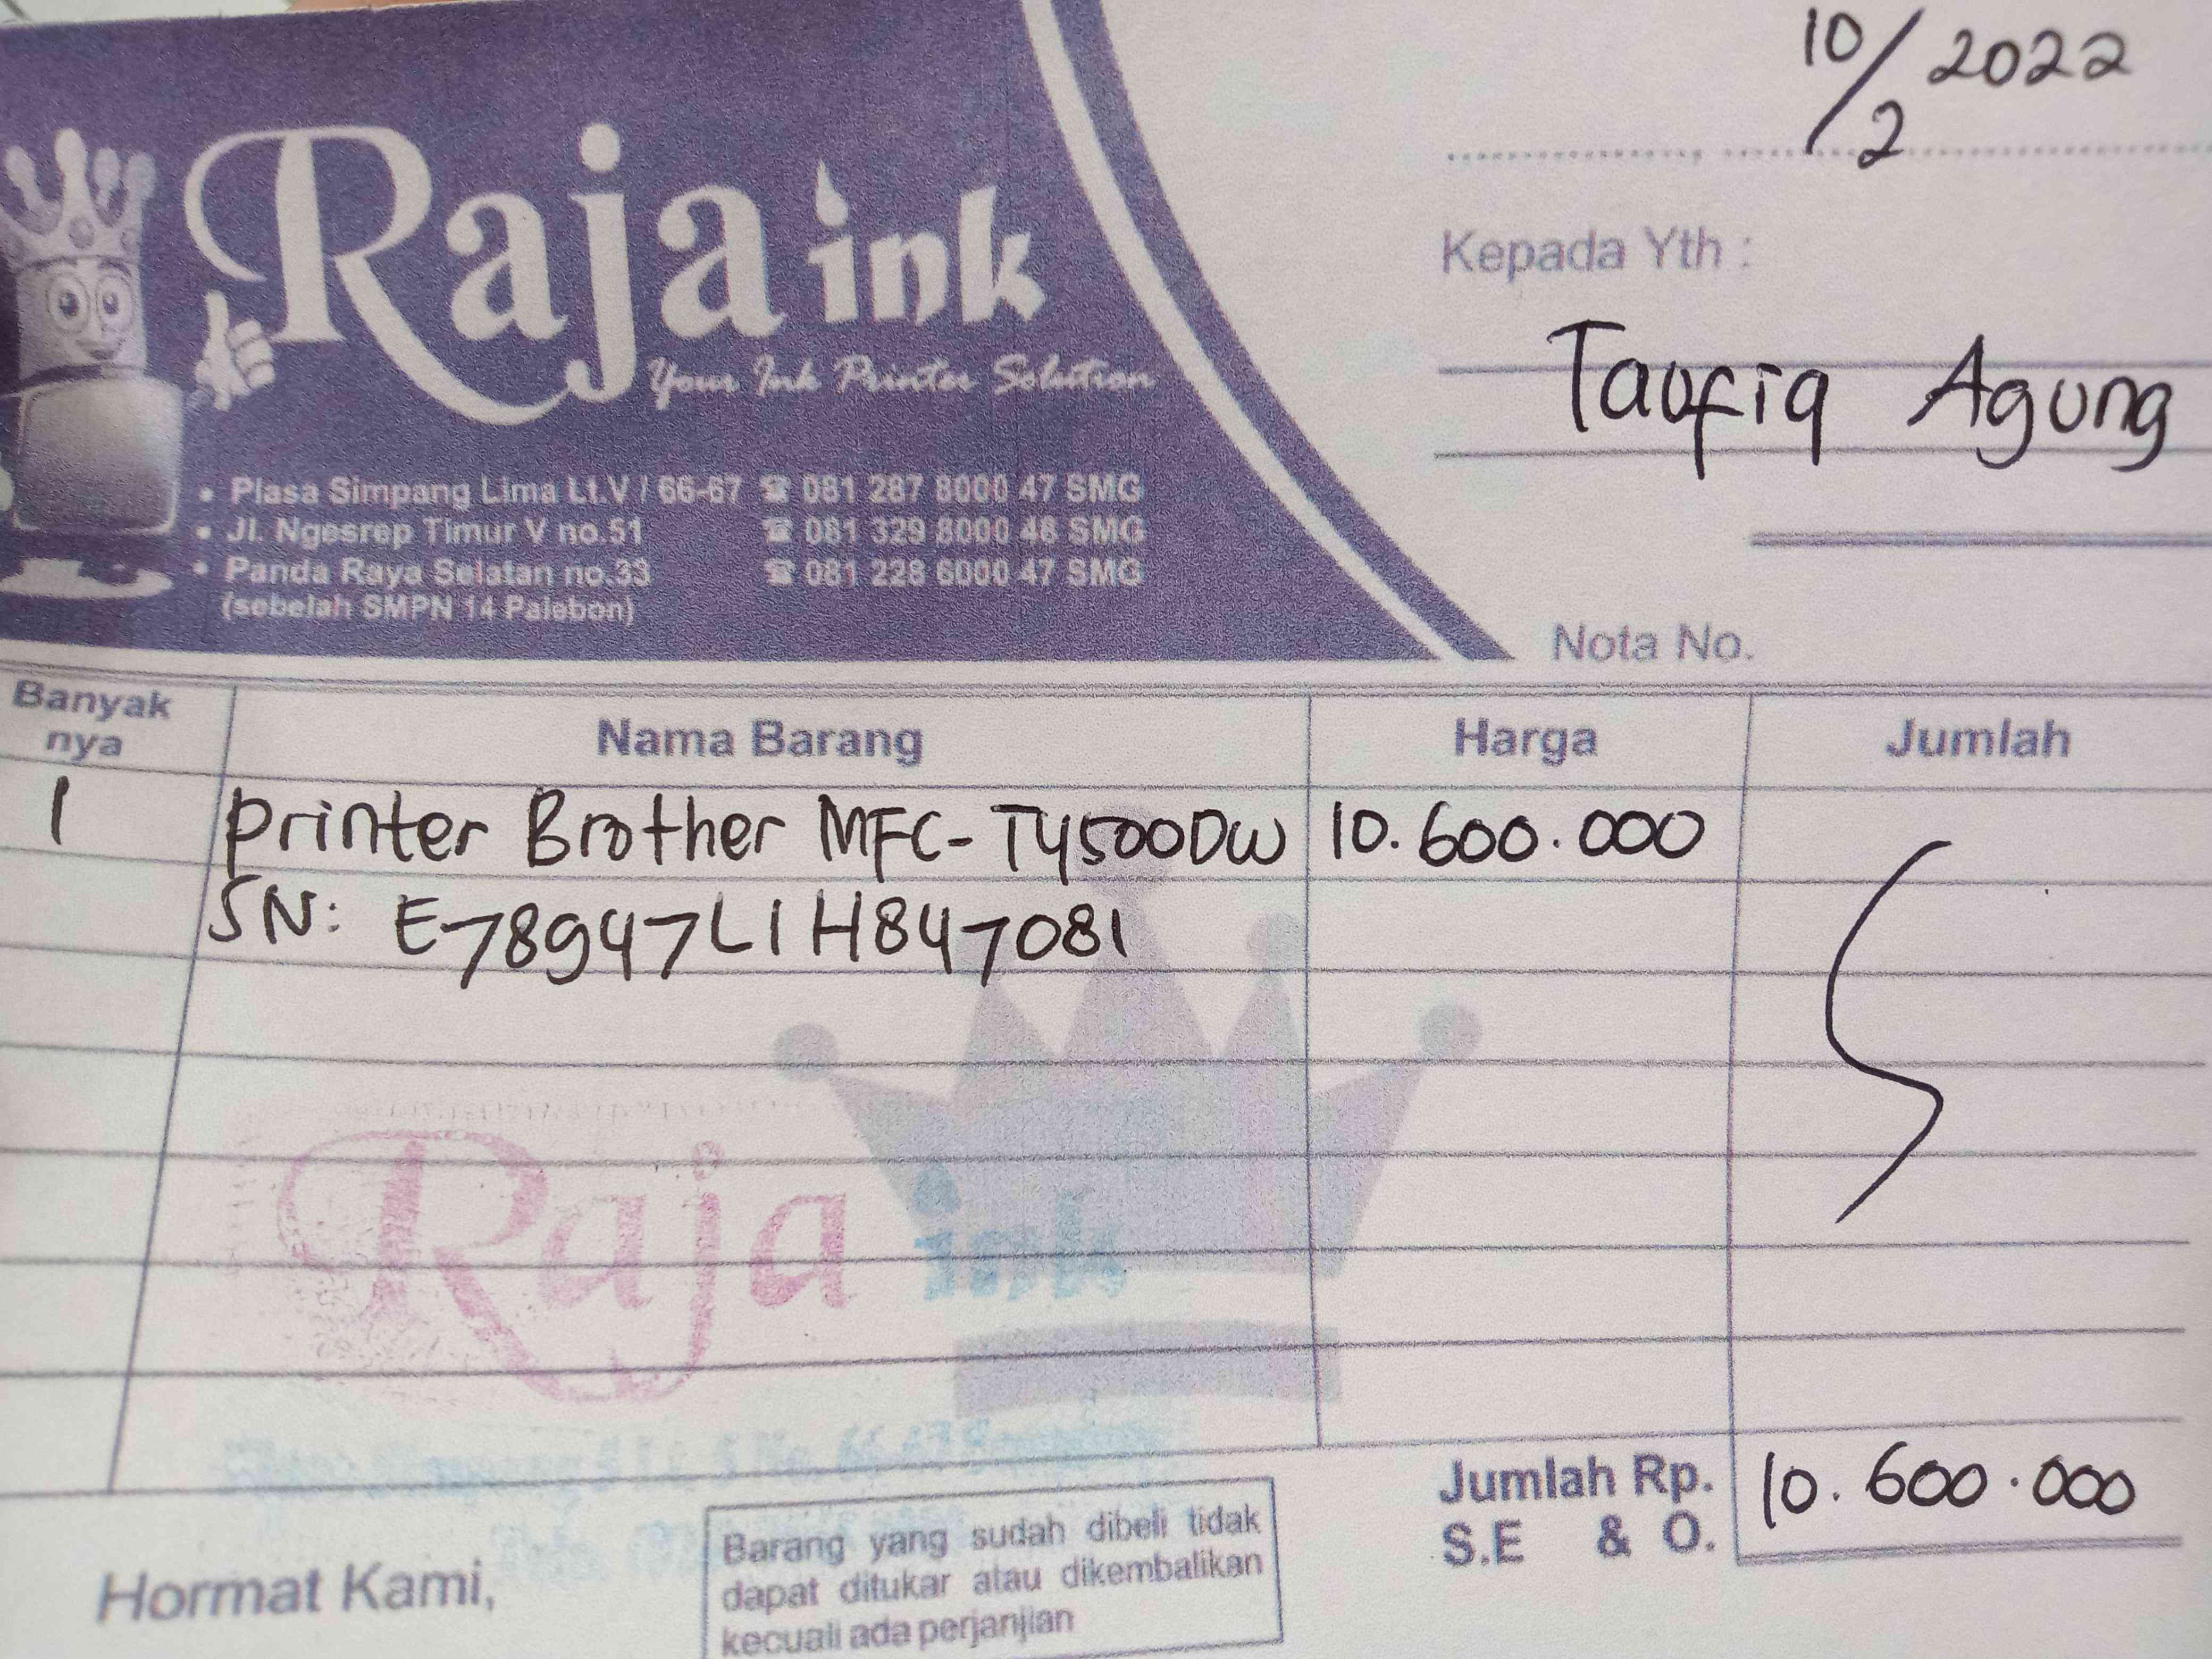 10/2 2022
Raja ink
Your Ink Printer Solution
• Plasa Simpang Lima Lt.V / 66-67 ☎ 081 287 8000 47 SMG
• Jl. Ngesrep Timur V no.51 ☎ 081 329 8000 48 SMG
• Panda Raya Selatan no.33 ☎ 081 228 6000 47 SMG
(sebelah SMPN 14 Palebon)
Kepada Yth :
Taufiq Agung
Nota No.
Banyak
nya
Nama Barang Harga Jumlah
1 Printer Brother MFC-T4500DW 10.600.000
SN: E78947L1H847081
Raja ink
Jumlah Rp. 10.600.000
S.E & O.
Hormat Kami,
Barang yang sudah dibeli tidak
dapat ditukar atau dikembalikan
kecuali ada perjanjian